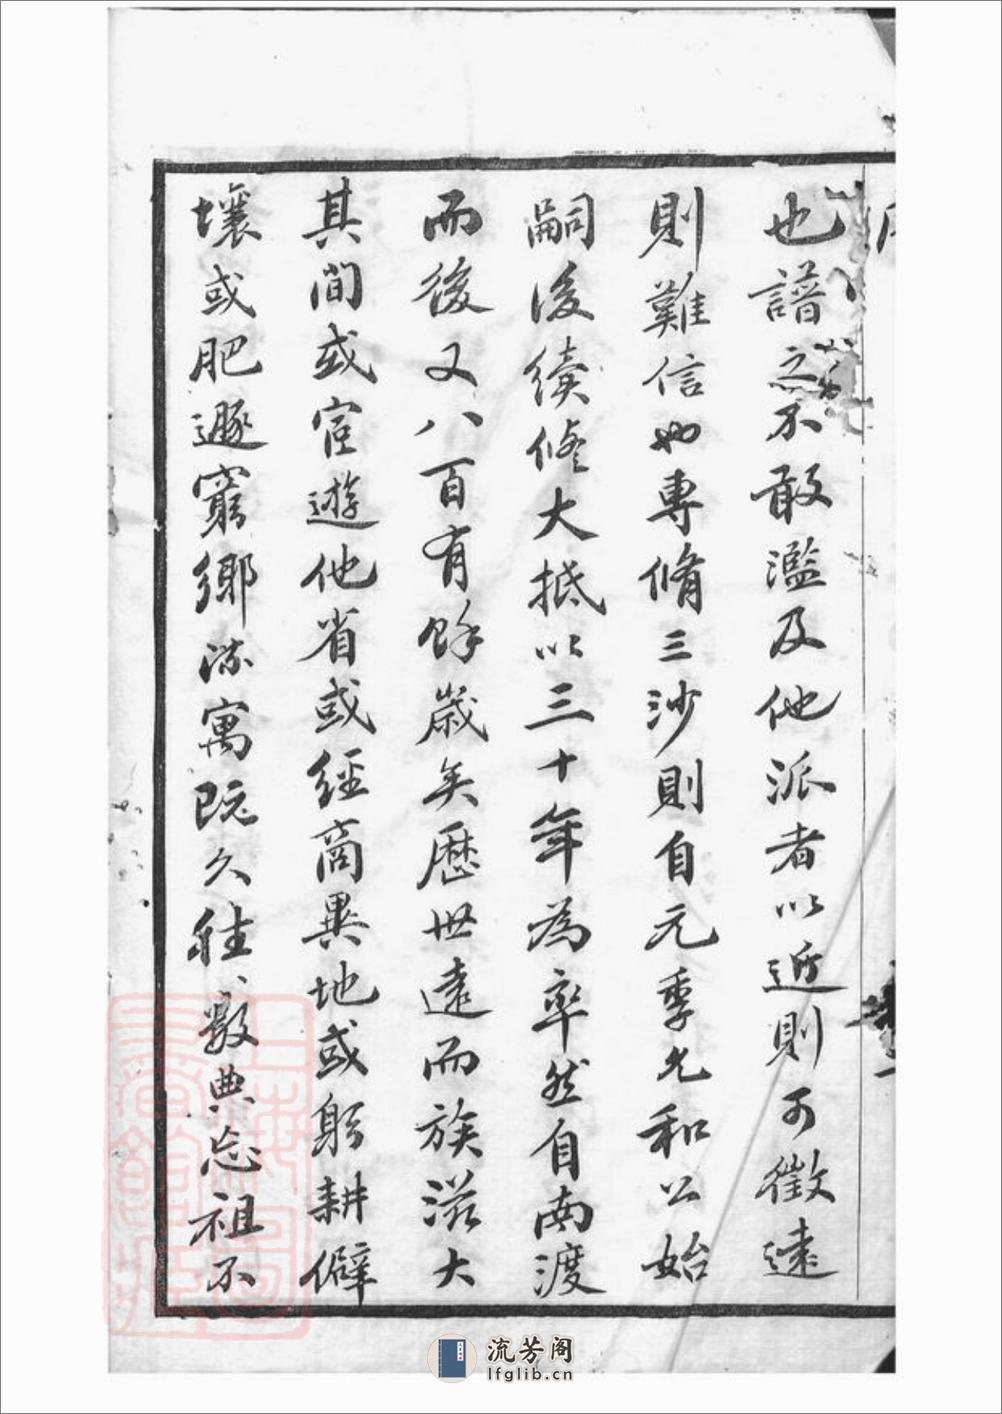 也譜之不敢濫及他派者以近則可徵遠
則難信也專脩三沙則自元季允和公始
嗣後續修大抵以三十年為率然自南渡
而後又八百有餘歲矣歷世遠而族滋大
其間或宦遊他省或經商異地或躬耕僻
壤或肥遯窮鄉流寓既久往〻數典忘祖不
流芳阁
lfglib.cn